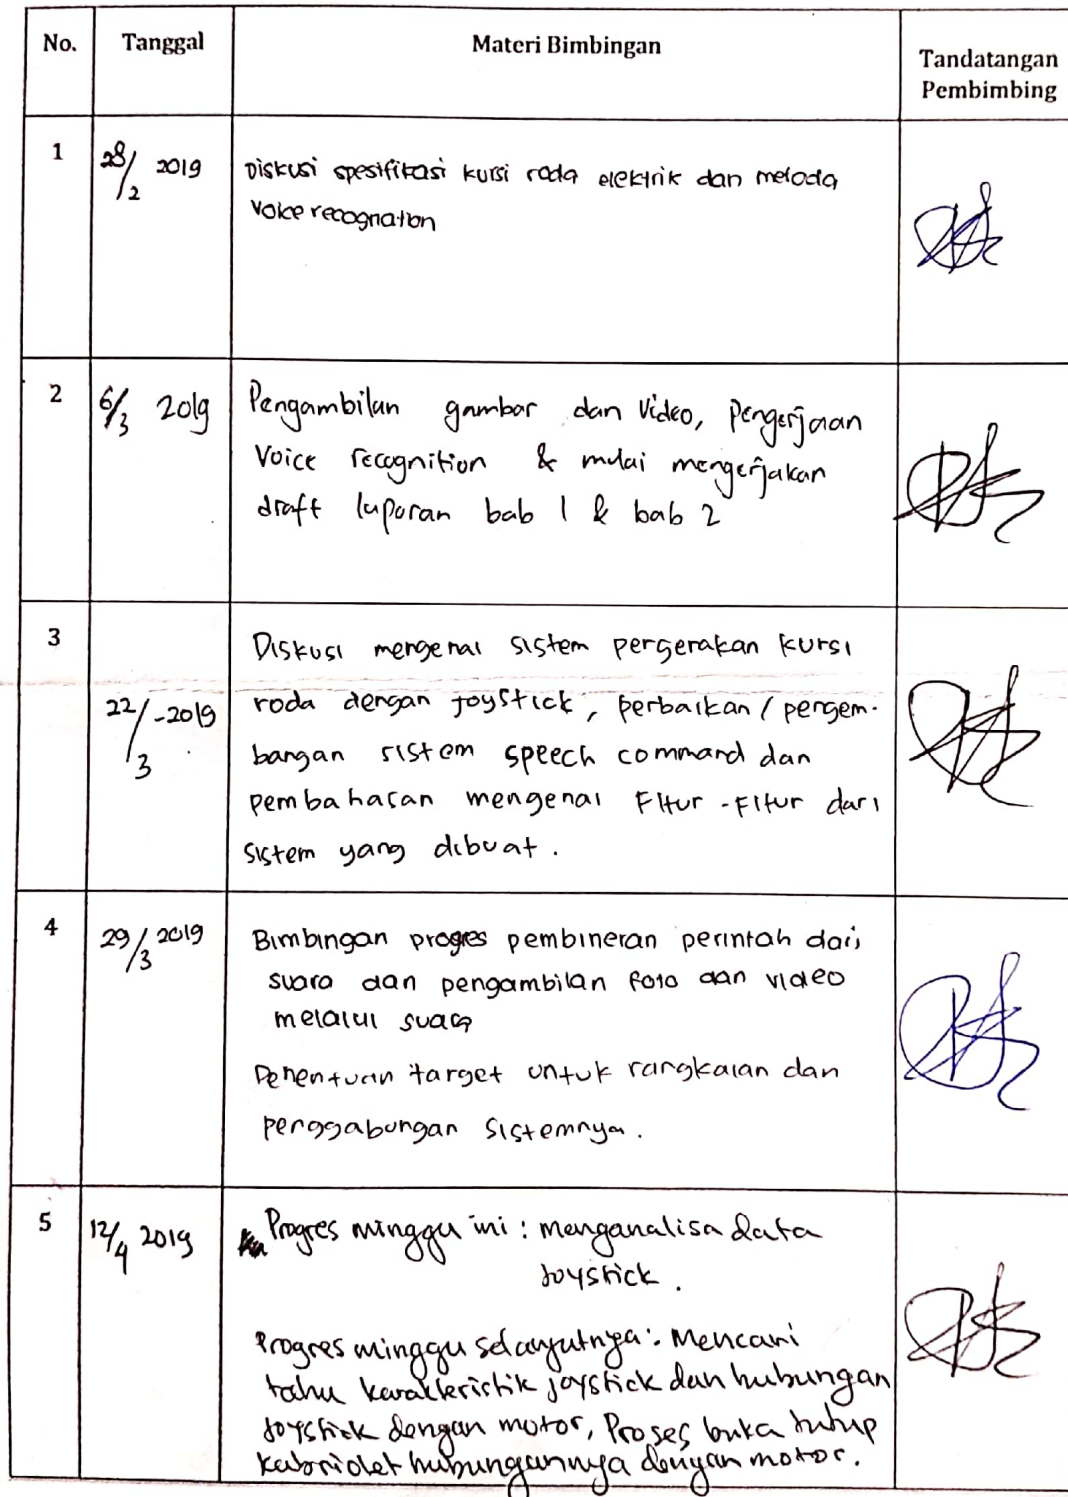 No. Tanggal Materi Bimbingan Tandatangan
Pembimbing
1 28/2 2019 Diskusi spesifikasi kursi roda elektrik dan metoda
Voice recognation
2 6/3 2019 Pengambilan gambar dan video, pengerjaan
Voice recognition & mulai mengerjakan
draft laporan bab 1 & bab 2
3 Diskusi mengenai sistem pergerakan kursi
22/3 -2019 roda dengan joystick, perbaikan / pengem-
bangan sistem speech command dan
pembahasan mengenai Fitur-Fitur dari
sistem yang dibuat.
4 29/3 2019 Bimbingan progres pembineran perintah dari
suara dan pengambilan foto dan video
melalui suara
Penentuan target untuk rangkaian dan
penggabungan sistemnya.
5 12/4 2019 Progres minggu ini : menganalisa data
Joystick.
Progres minggu selanjutnya : Mencari
tahu karakteristik joystick dan hubungan
Joystick dengan motor, Proses buka tutup
kabriolet hubungannya dengan motor.